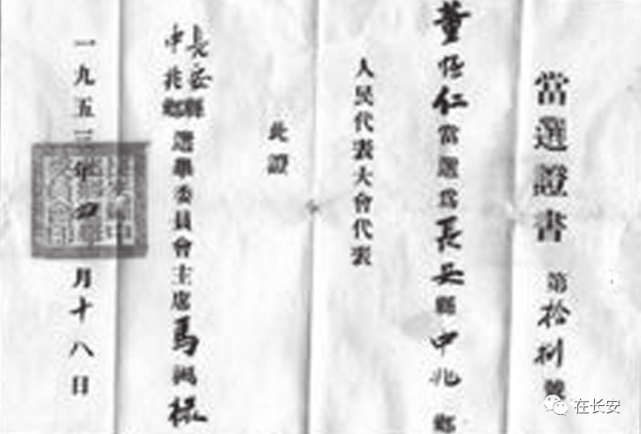 當選證書 第拾捌號
董恆仁當選為長安縣中兆鄉
人民代表大會代表
此證
長安縣
中兆鄉選舉委員會主席馬鴻
一九五三年四月十八日
在长安